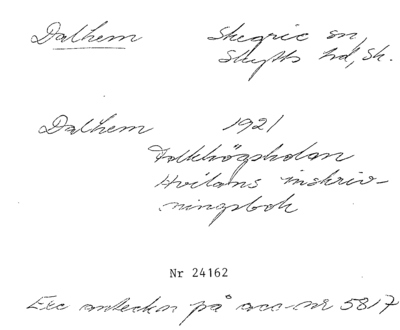 Dalhem Skegrie sn,
Skytts hd, Sk.
Dalhem 1921
Folkhögskolan
Hvilans inskriv-
ningsbok
Nr 24162
Exc antecknn på acc.nr 5817